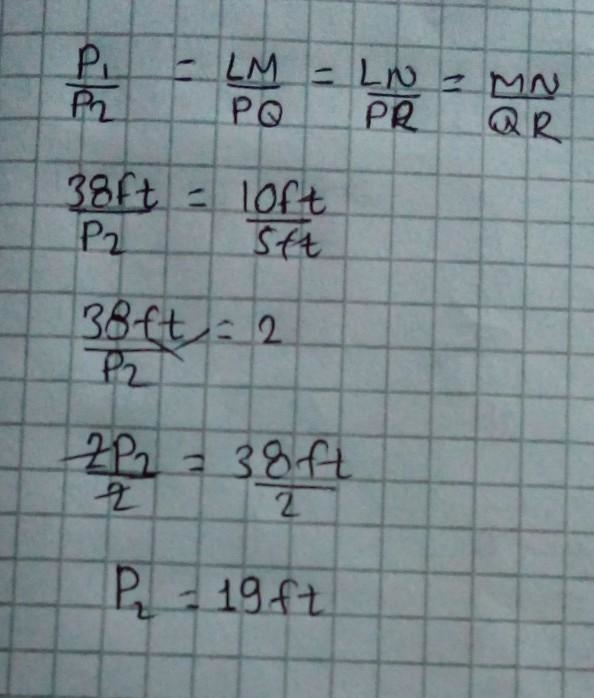 P₁/P₂ = LM/PQ = LN/PR = MN/QR
38ft/P₂ = 10ft/5ft
38ft/P₂ = 2
2P₂/2 = 38ft/2
P₂ = 19ft